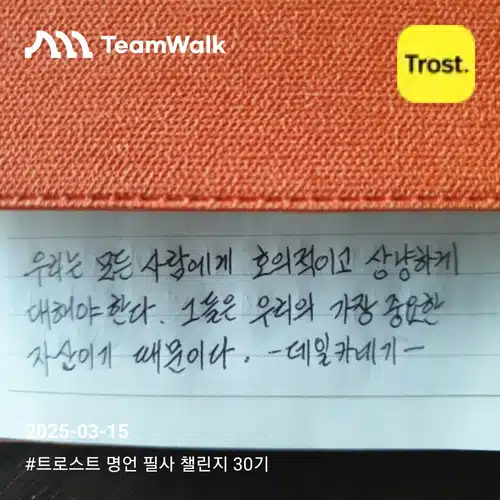 TeamWalk
Trost.
우리는 모든 사람에게 호의적이고 상냥하게
대해야 한다. 그들은 우리의 가장 중요한
자산이기 때문이다. -데일카네기-
2025-03-15
#트로스트 명언 필사 챌린지 30기